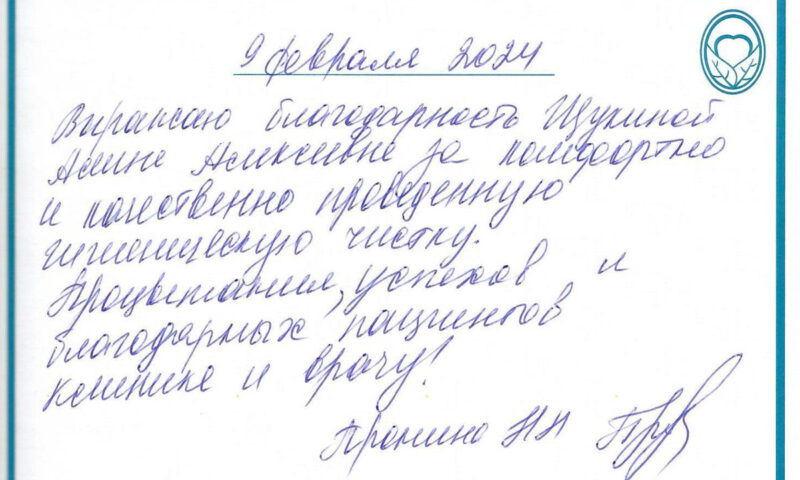 9 февраля 2024
Выражаю благодарность Щукиной
Алине Алексеевне за комфортно
и качественно проведенную
гигиеническую чистку.
Процветания, успехов и
благодарных пациентов
клинике и врачу!
Пронина НН